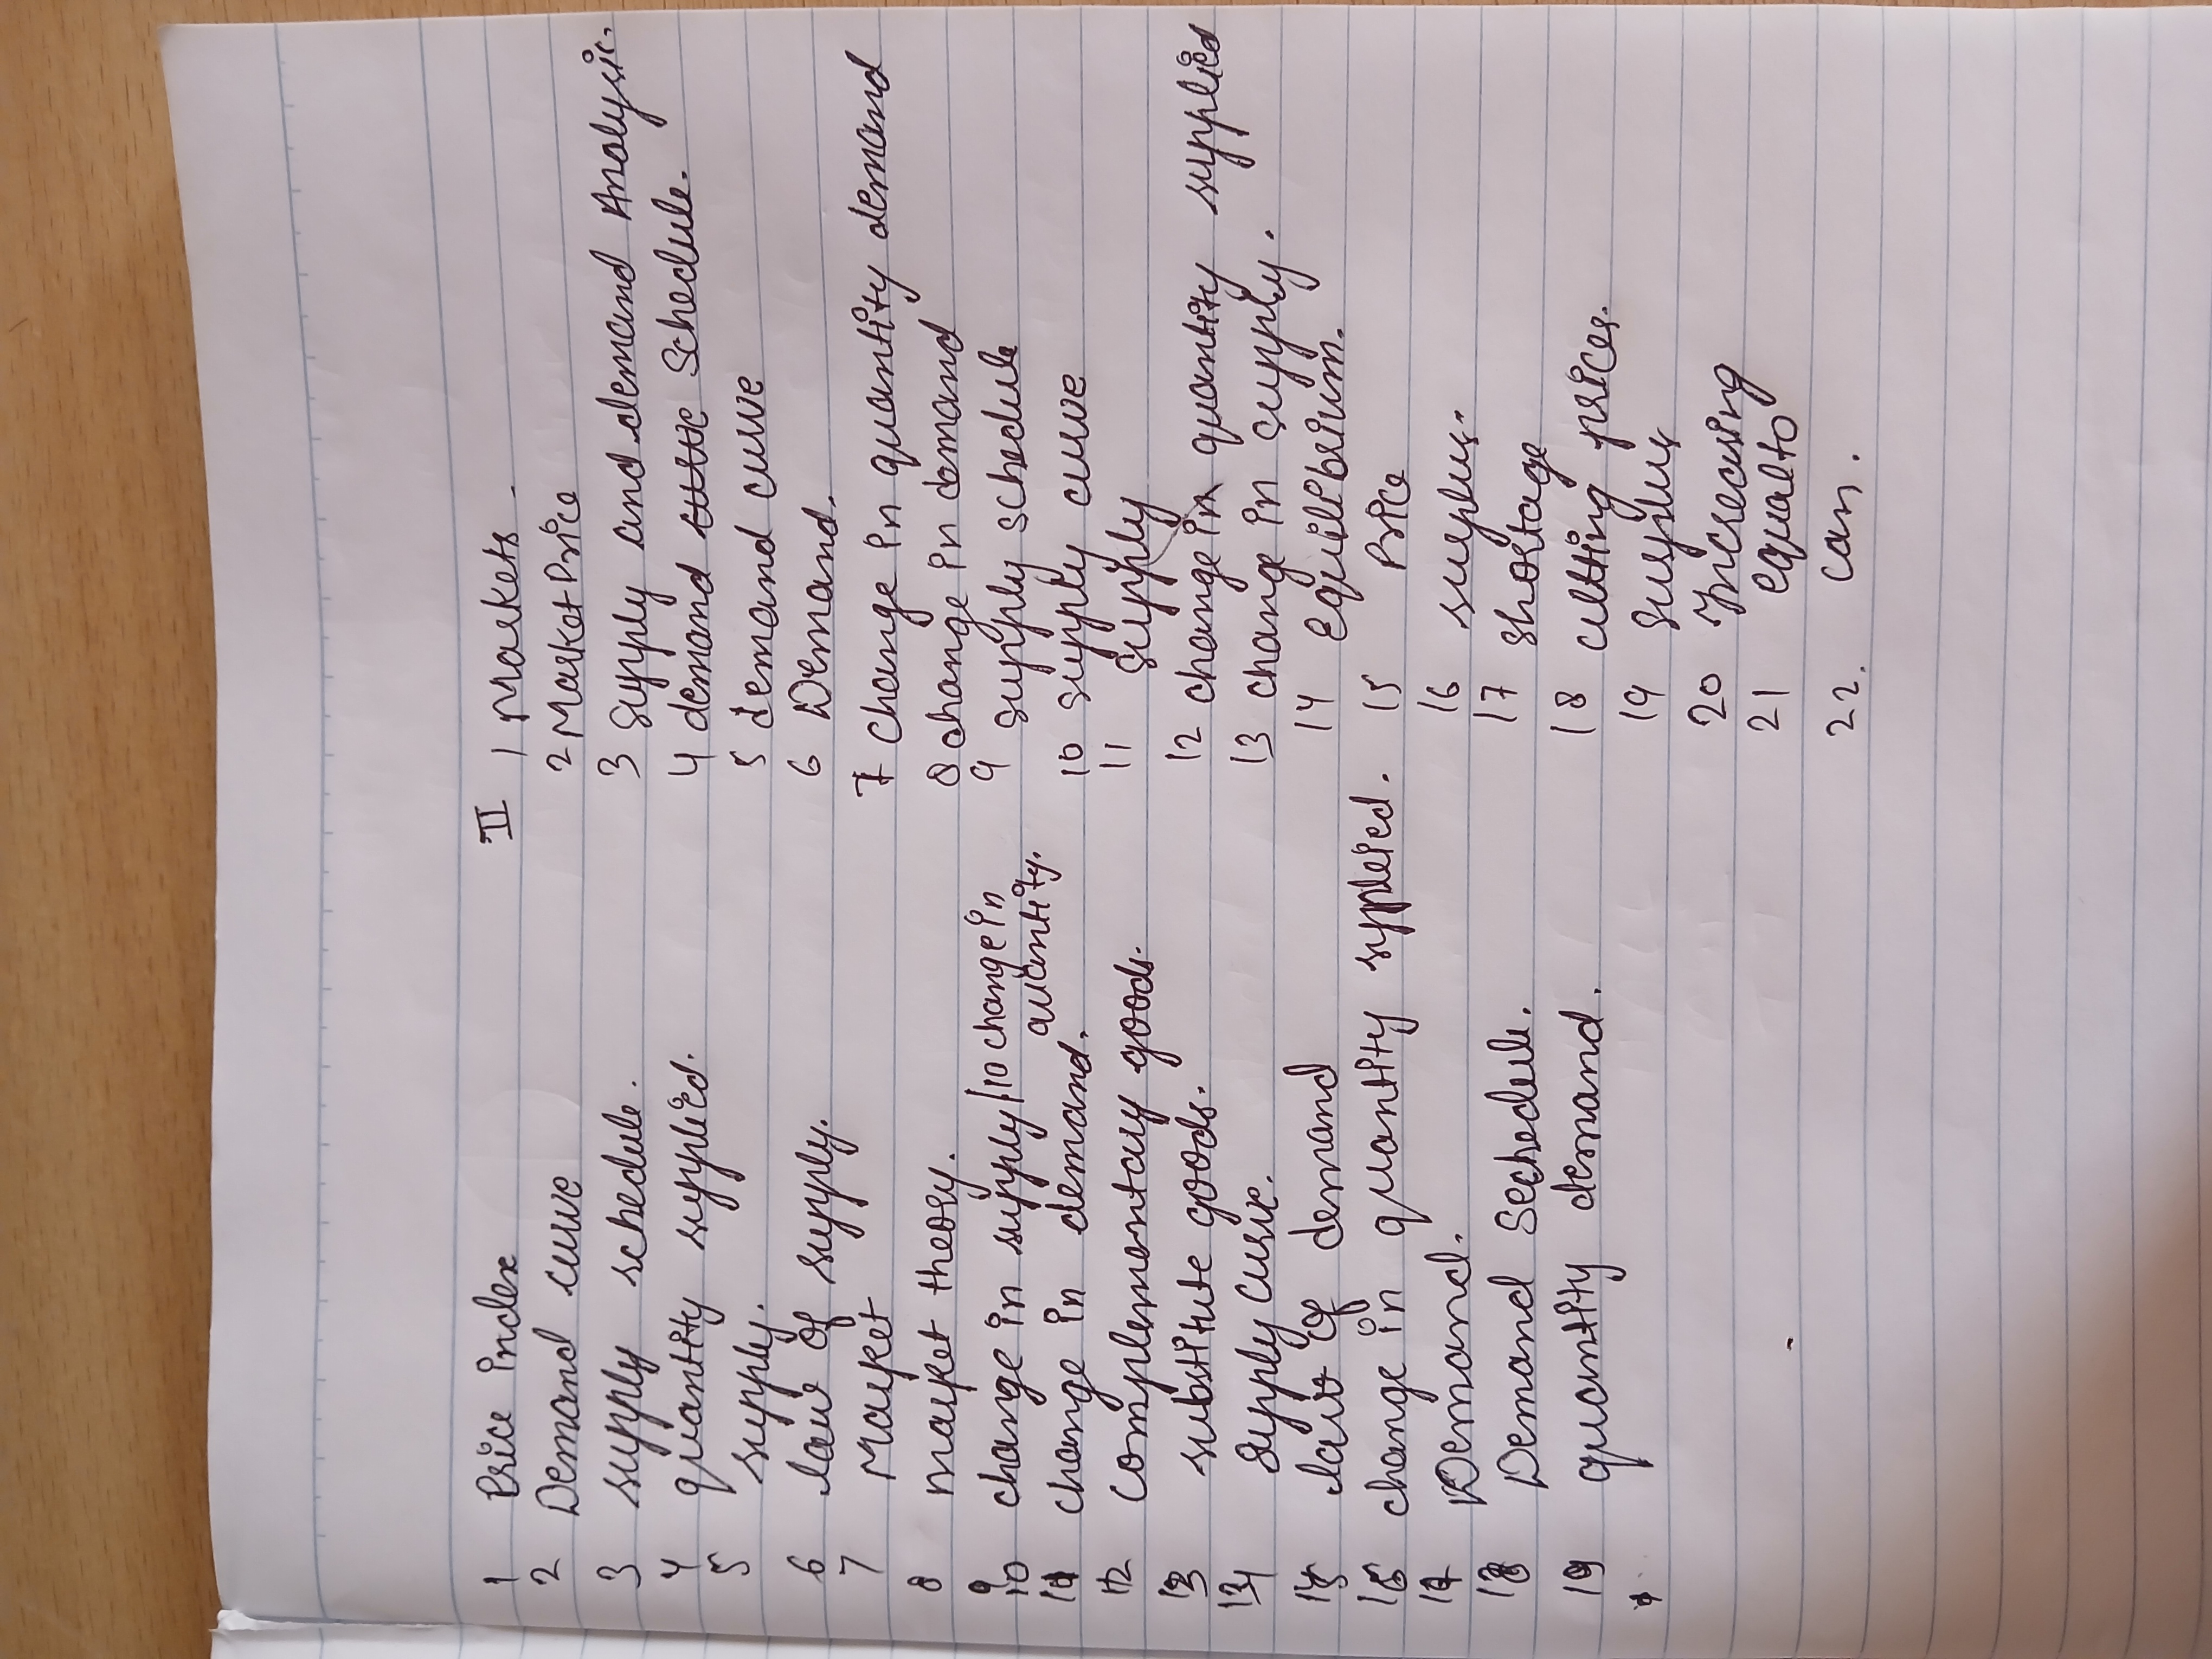 1 Price index
2 Demand curve
3 supply schedule.
4 quantity supplied.
5 supply.
6 law of supply.
7 Market
8 market theory.
9 change in supply / 10 change in
quantity.
10
11 change in demand.
12 complementary goods.
13 substitute goods.
14 supply curve.
15 law of demand
16 change in quantity supplied.
17 Demand.
18 Demand Schedule.
19 quantity demand.
II
1 Markets.
2 Market Price
3 Supply and demand Analysis.
4 demand curve Schedule.
5 demand curve
6 Demand.
7 Change in quantity demand
8 change in demand
9 supply schedule
10 supply curve
11 supply
12 change in quantity supplied
13 change in supply.
14 equilibrium.
15 Price
16 surplus.
17 shortage
18 cutting prices.
19 surplus
20 Increasing
21 equal to
22. can.